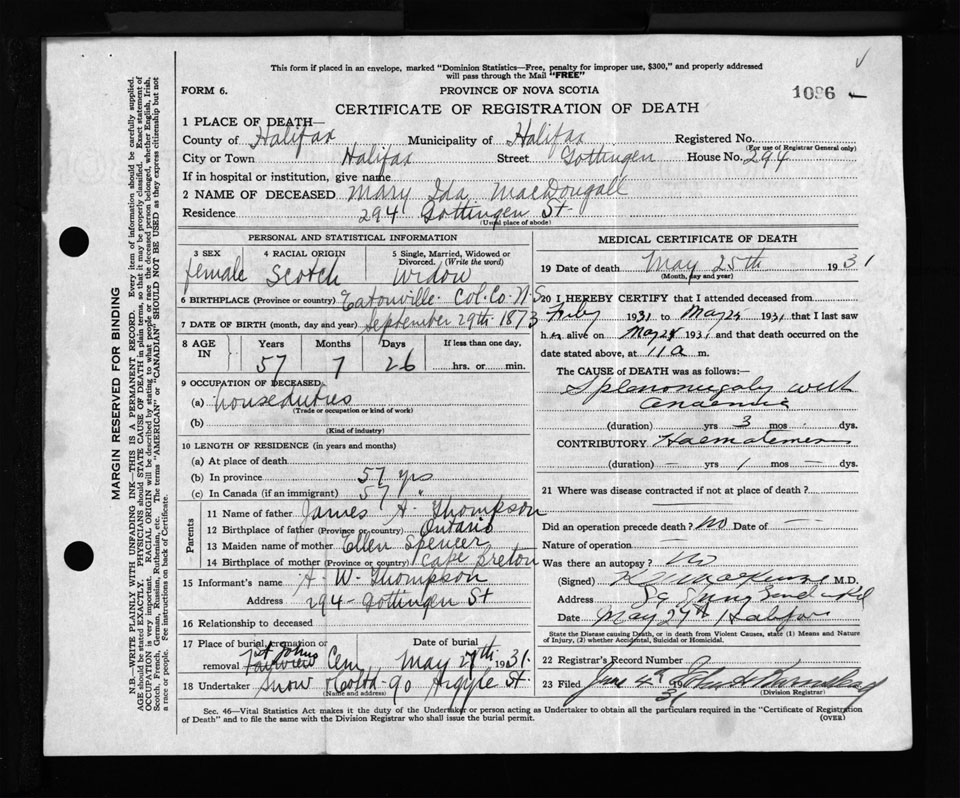 This form if placed in an envelope, marked "Dominion Statistics—Free, penalty for improper use, $300," and properly addressed
will pass through the Mail "FREE"
FORM 6.
PROVINCE OF NOVA SCOTIA
1096
CERTIFICATE OF REGISTRATION OF DEATH
1 PLACE OF DEATH—
County of Halifax Municipality of Halifax Registered No.
(For use of Registrar General only)
City or Town Halifax Street Gottingen House No. 294
If in hospital or institution, give name
2 NAME OF DECEASED Mary Ida MacDougall
Residence 294 Gottingen St
(Usual place of abode)
PERSONAL AND STATISTICAL INFORMATION
3 SEX 4 RACIAL ORIGIN 5 Single, Married, Widowed or
Divorced. (Write the word)
female Scotch Widow
6 BIRTHPLACE (Province or country) Eatonville Col. Co. N.S
7 DATE OF BIRTH (month, day and year) September 29th 1873
8 AGE IN Years Months Days If less than one day,
57 7 26 hrs. or min.
9 OCCUPATION OF DECEASED
(a) houseduties
(Trade or occupation or kind of work)
(b)
(Kind of industry)
10 LENGTH OF RESIDENCE (in years and months)
(a) At place of death
(b) In province 57 yrs
(c) In Canada (if an immigrant) 57 "
Parents
11 Name of father James A. Thompson
12 Birthplace of father (Province or country) Ontario
13 Maiden name of mother Ellen Spencer
14 Birthplace of mother (Province or country) Cape Breton
15 Informant's name A. W. Thompson
Address 294 - Gottingen St
16 Relationship to deceased
17 Place of burial, cremation or Date of burial
removal St Johns Fairview Cem, May 27th 1931.
18 Undertaker Snow & Co Ltd - 90 Argyle St.
(Name and address)
MEDICAL CERTIFICATE OF DEATH
19 Date of death May 25th 1931
(Month, day and year)
20 I HEREBY CERTIFY that I attended deceased from
1931 to May 24 1931 that I last saw
h alive on May 24 1931 and that death occurred on the
date stated above, at 11 a m.
The CAUSE OF DEATH was as follows:—
Splenomegaly with
anaemia
(duration) yrs 3 mos - dys.
CONTRIBUTORY Haematemesis
(duration) — yrs 1 mos — dys.
21 Where was disease contracted if not at place of death?
Did an operation precede death? No Date of —
Nature of operation —
Was there an autopsy? No
(Signed) MacKenzie M.D.
Address Spring Garden Rd
Date May 29th Halifax
State the Disease causing Death, or in death from Violent Causes, state (1) Means and Nature
of Injury, (2) whether Accidental, Suicidal or Homicidal.
22 Registrar's Record Number
23 Filed June 4th 1931 John H.
(Division Registrar)
Sec. 46—Vital Statistics Act makes it the duty of the Undertaker or person acting as Undertaker to obtain all the particulars required in the "Certificate of Registration
of Death" and to file the same with the Division Registrar who shall issue the burial permit.
(OVER)
MARGIN RESERVED FOR BINDING
N.B.—WRITE PLAINLY WITH UNFADING INK—THIS IS A PERMANENT RECORD. Every item of information should be carefully supplied.
AGE should be stated EXACTLY. PHYSICIANS should STATE CAUSE OF DEATH in plain terms, so that it may be properly classified. Exact statement of
OCCUPATION is very important. RACIAL ORIGIN will be described by stating to what people or race the deceased person belonged, whether English, Irish,
Scotch, French, German, Russian, Ruthenian, etc. The terms "AMERICAN" or "CANADIAN" SHOULD NOT BE USED as they express citizenship but not
a race or people. See instructions on back of Certificate.